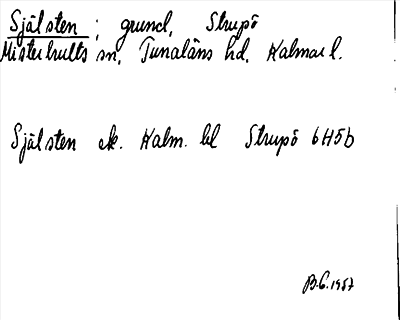 Själsten ; grund, Strupö
Misterhults sn, Tunaläns hd, Kalmar l.
Själsten ek. Kalm. bl Strupö 6H5b
B.G. 1957